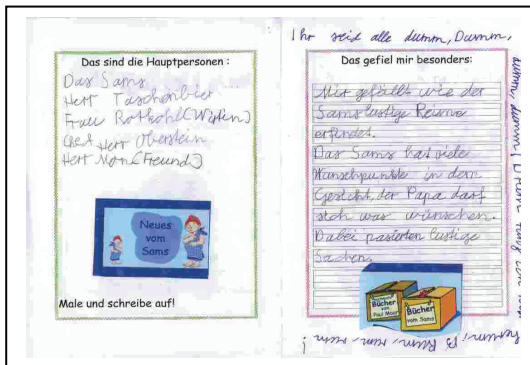 Das sind die Hauptpersonen :
Das Sams
Herr Taschenbier
Frau Rotkohl (Wirtin)
Chef Herr Oberstein
Herr Mon (Freund)
Neues
vom
Sams
Male und schreibe auf!
Ihr seid alle dumm, Dumm,
dumm, dumm,
Das gefiel mir besonders:
Mir gefällt wie der
Sams lustige Reime
erfindet.
Das Sams hat viele
Wunschpunkte in dem
Gesicht, der Papa darf
sich was wünschen.
Dabei pasierten lustige
Sachen.
Bücher
von
Paul Maar
Bücher
vom Sams
herum,
rum, rum, rum !